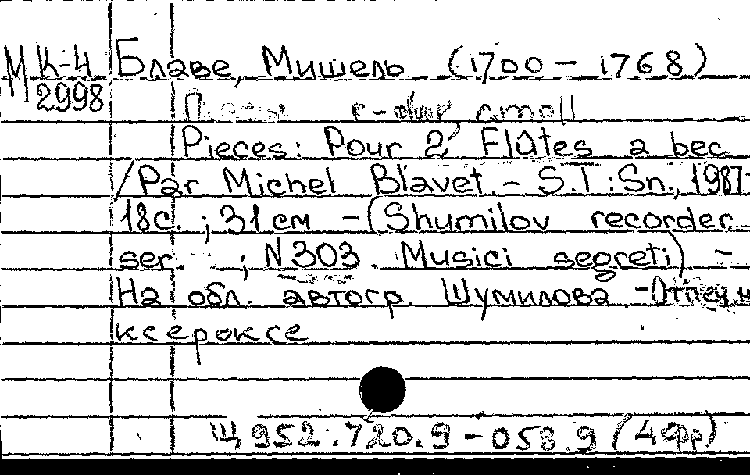 МК-4 Блаве, Мишель (1700 – 1768)
2998
c-dur, c moll
Pieces: Pour 2 Flûtes a bec
/Par Michel Blavet. – S.T: Sn., 1987-
18с. ; 31 см – (Shumilov recorder
ser. ; N 303. Musici segreti) –
На обл. автогр. Шумилова – Отпеч. н
ксероксе
Щ 952.720.9 – 058.9 (4Фр)